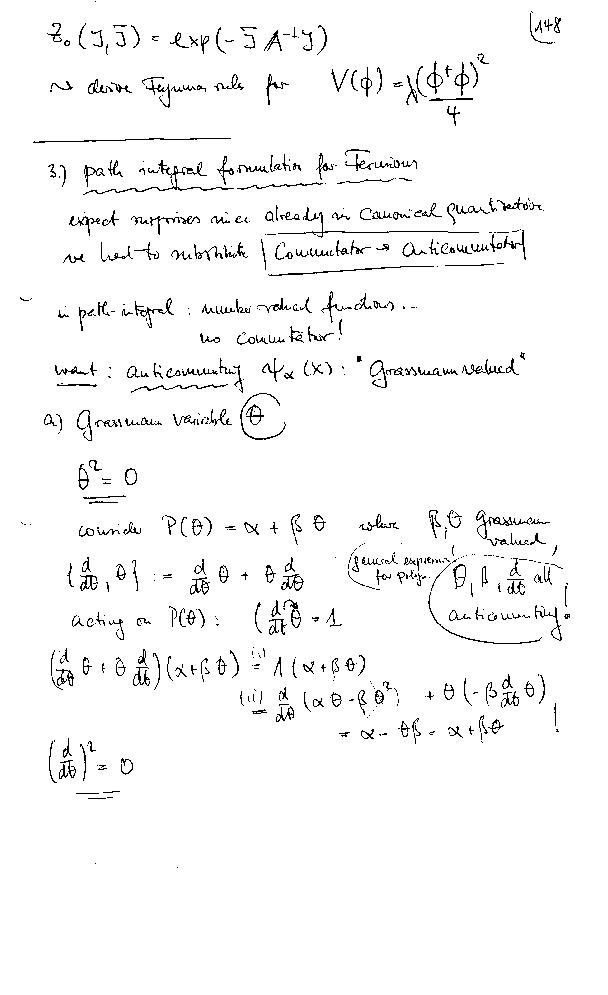 148
Z₀(J, J̄) = exp(- J̄ A⁻¹ J)
~> derive Feynman rules for V(ϕ) = λ (ϕ†ϕ)² / 4
3.) path integral formulation for Fermions
expect surprises since already in canonical quantization
we had to substitute Commutator → Anticommutator
in path-integral : number-valued functions...
no commutator!
want : anticommuting ψ_α(x) : "Grassmann valued"
a) Grassmann variable θ
θ² = 0
consider P(θ) = α + β θ where β, θ Grassmann valued,
general expression for polyn.
{d/dθ, θ} := d/dθ θ + θ d/dθ
θ, β, d/dθ all anticommuting!
acting on P(θ) : (d/dθ θ = 1
(d/dθ θ + θ d/dθ)(α + β θ) (i)= 1 (α + β θ)
(ii)= d/dθ (α θ - β θ²) + θ (-β d/dθ θ)
= α - θβ = α + βθ !
(d/dθ)² = 0